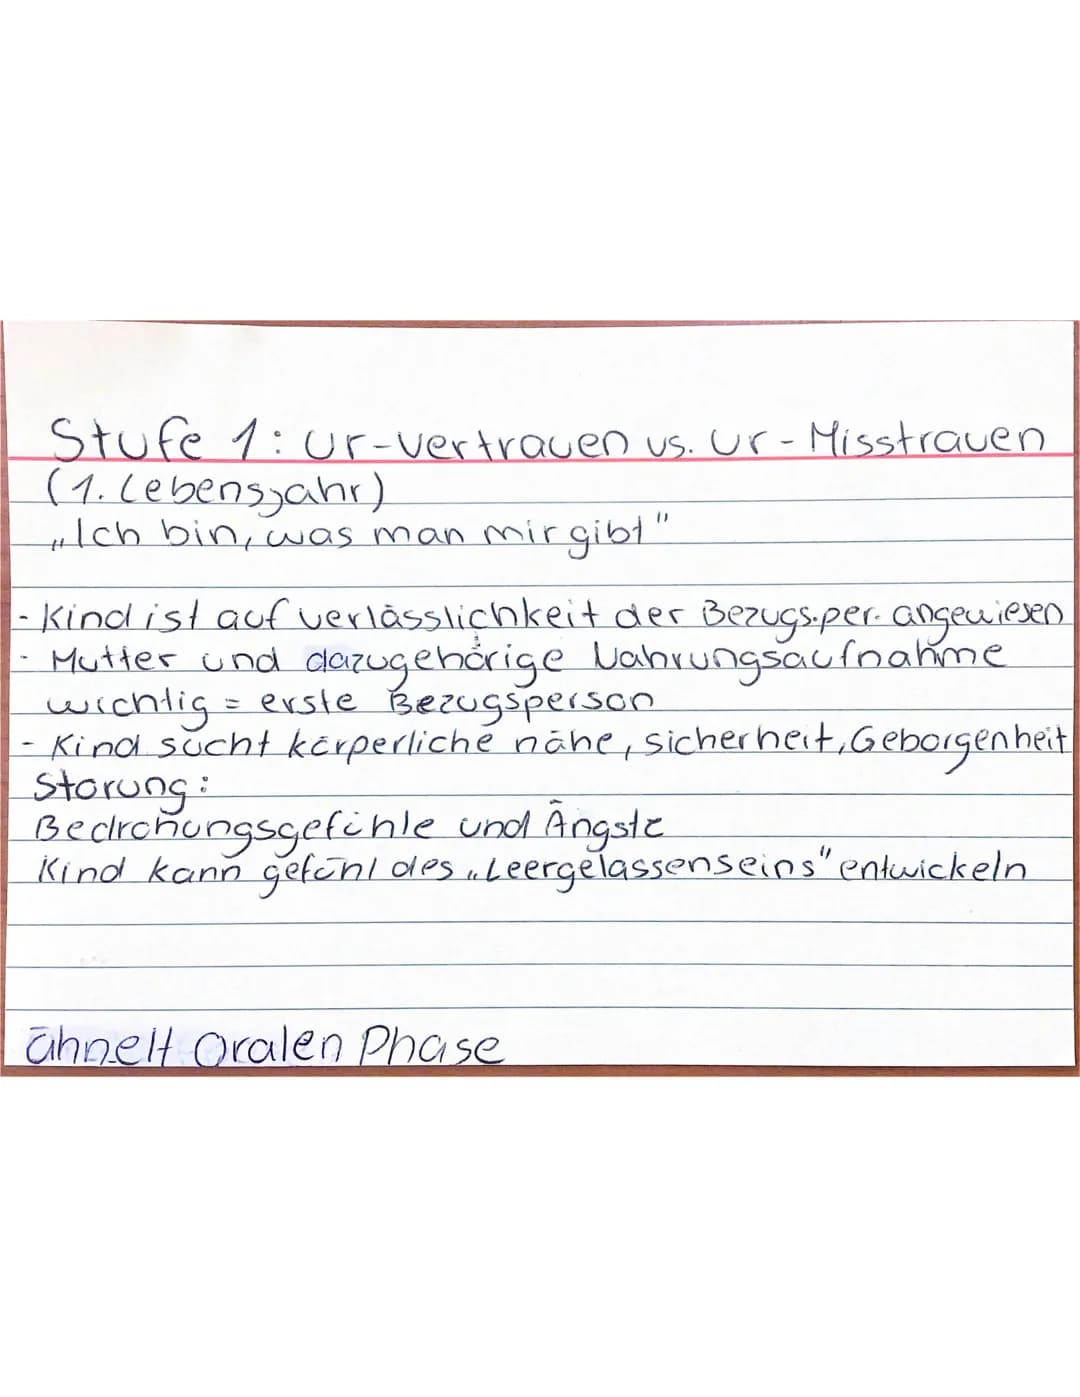 Stufe 1: Ur-Vertrauen vs. Ur-Misstrauen
(1. Lebensjahr)
„Ich bin, was man mir gibt"
- Kind ist auf verlässlichkeit der Bezugs.per. angewiesen
- Mutter und dazugehörige Nahrungsaufnahme
wichtig = erste Bezugsperson
- Kind sucht körperliche nähe, sicherheit, Geborgenheit
Störung:
Bedrohungsgefühle und Ängste
Kind kann gefühl des „Leergelassenseins" entwickeln
ähnelt Oralen Phase